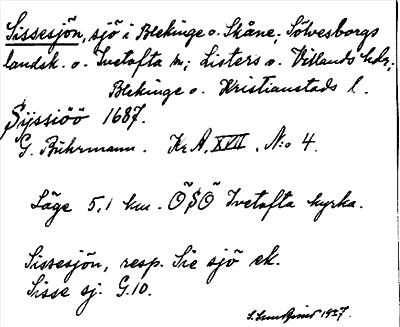 Sissesjön, sjö i Blekinge o. Skåne; Sölvesborgs
landsk. o. Ivetofta sn; Listers o. Villands hdr;
Blekinge o. Kristianstads l.
Syssiöö 1687.
G. Buhrmann. Kr. A. XVII. N:o 4.
Läge 5,1 km. ÖSÖ Ivetofta kyrka.
Sissesjön, resp. Sie sjö ek.
Sisse sj. G.10.
1927.